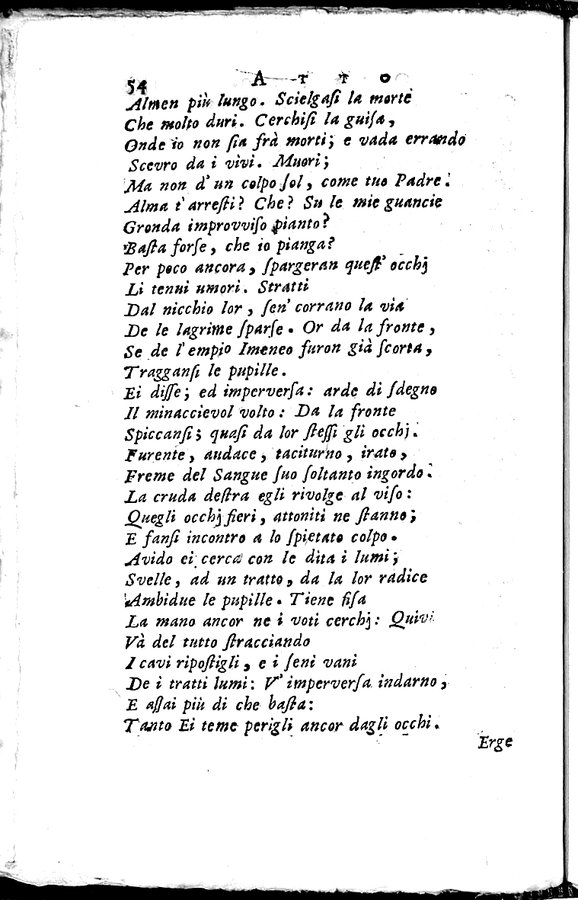 54 ATTO
Almen più lungo. Scielgaſi la morte
Che molto duri. Cerchiſi la guiſa,
Onde io non ſia frà morti; e vada errando
Scevro da i vivi. Muori;
Ma non d'un colpo ſol, come tuo Padre.
Alma t'arreſti? Che? Su le mie guancie
Gronda improvviſo pianto?
Baſta forſe, che io pianga?
Per poco ancora, ſpargeran queſt' occhj
Li tenui umori. Stratti
Dal nicchio lor, ſen' corrano la via
De le lagrime ſparſe. Or da la fronte,
Se de l'empio Imeneo furon già ſcorta,
Tragganſi le pupille.
Ei diſſe; ed imperverſa: arde di ſdegno
Il minaccievol volto: Da la fronte
Spiccanſi; quaſi da lor ſteſſi gli occhj.
Furente, audace, taciturno, irato,
Freme del Sangue ſuo ſoltanto ingordo.
La cruda deſtra egli rivolge al viſo:
Quegli occhj fieri, attoniti ne ſtanno;
E fanſi incontro a lo ſpietato colpo.
Avido ei cerca con le dita i lumi;
Svelle, ad un tratto, da la lor radice
Ambidue le pupille. Tiene fiſa
La mano ancor ne i voti cerchj: Quivi
Và del tutto ſtracciando
I cavi ripoſtigli, e i ſeni vani
De i tratti lumi: V' imperverſa indarno,
E aſſai più di che baſta:
Tanto Ei teme perigli ancor dagli occhi.
Erge